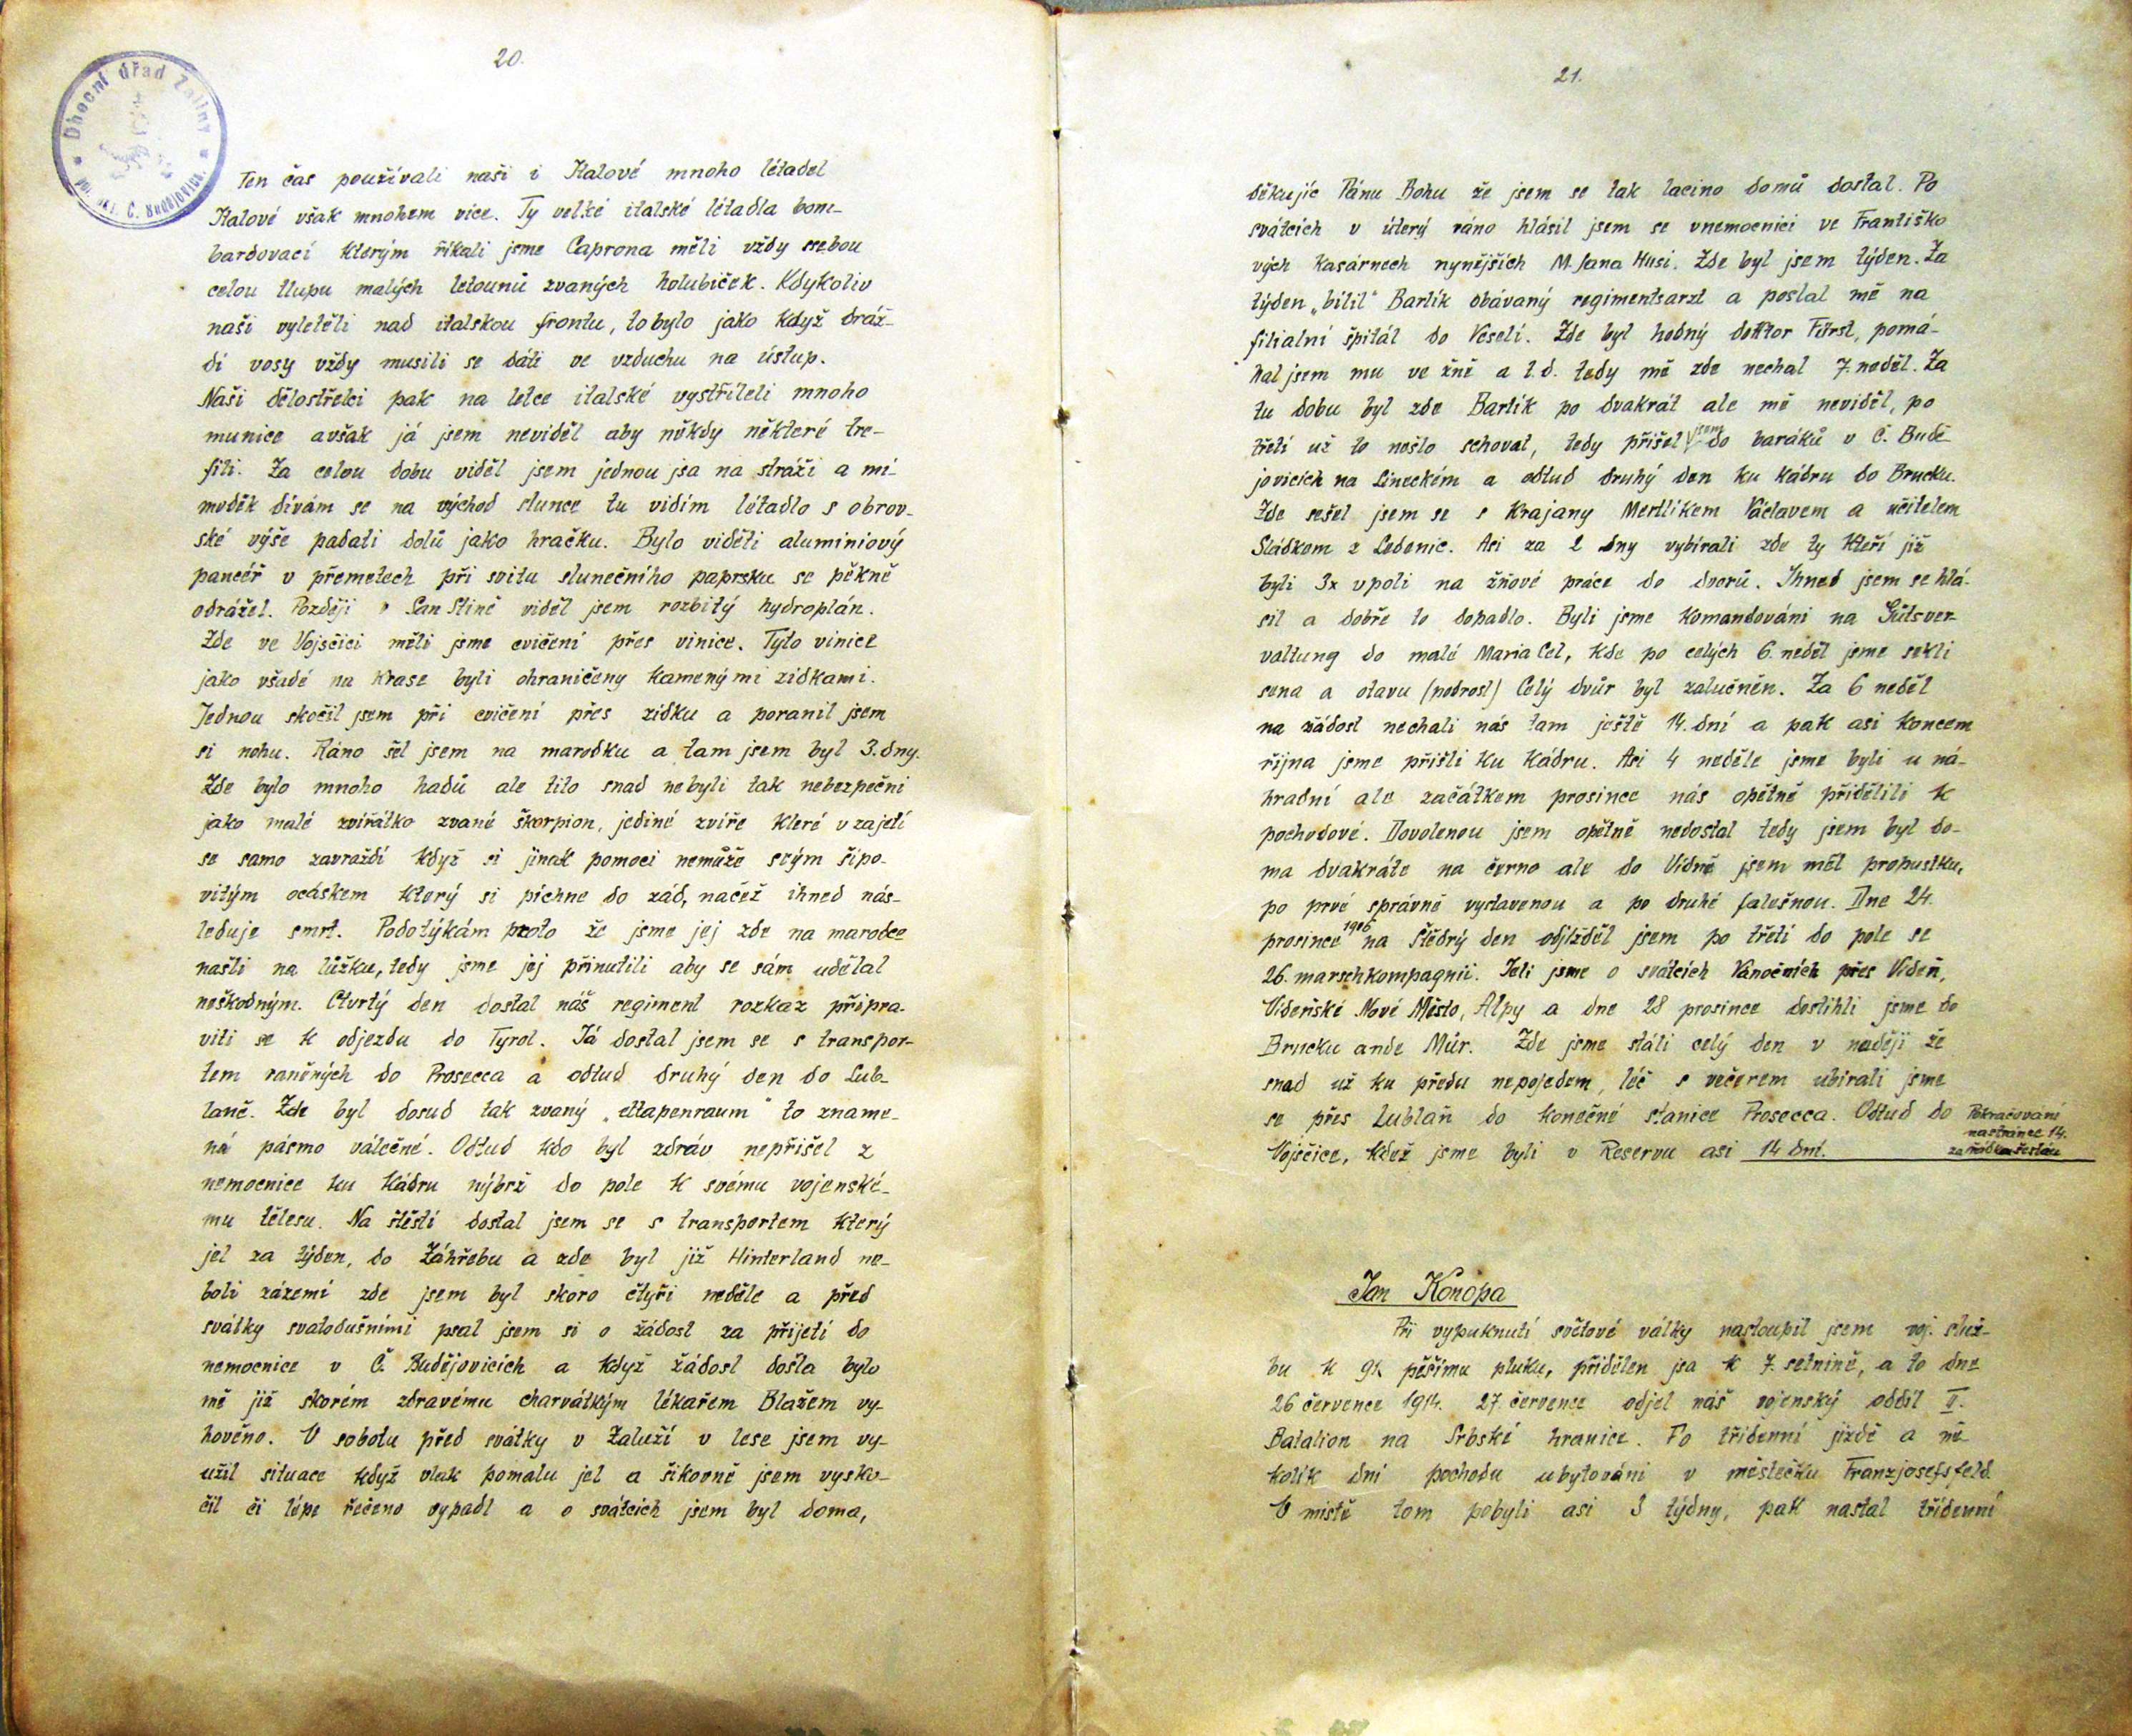 20.
Obecní úřad Zaliny
Č. Budějovice
Ten čas používali naši i Italové mnoho létadel
Italové však mnohem více. Ty velké italské létadla bom-
bardovací kterým říkali jsme Caprona měli vždy ssebou
celou tlupu malých letounů zvaných holubiček. Kdykoliv
naši vyletěli nad italskou frontu, tobylo jako když dráž-
dí vosy vždy musili se dáti ve vzduchu na ústup.
Naši dělostřelci pak na letce italské vystříleli mnoho
munice avšak já jsem neviděl aby někdy některé tre-
fili. Za celou dobu viděl jsem jednou jsa na stráži a mi-
moděk dívám se na východ slunce tu vidím létadlo s obrov-
ské výše padati dolů jako hračku. Bylo viděti aluminiový
pancéř v přemetech při svitu slunečního paprsku se pěkně
odrážel. Později San Stině viděl jsem rozbitý hydroplán.
Zde ve Vojsčici měli jsme cvičení přes vinice. Tyto vinice
jako všudé na Krase byli ohraničeny kamenými zídkami.
Jednou skočil jsem při cvičení přes zídku a poranil jsem
si nohu. Ráno šel jsem na marodku a tam jsem byl 3. dny.
Zde bylo mnoho hadů ale tito snad nebyli tak nebezpeční
jako malé zvířátko zvané škorpion, jediné zvíře které v zajetí
se samo zavraždí když si jinak pomoci nemůže svým šípo-
vitým ocáskem který si píchne do zad, načež ihned nás-
leduje smrt. Podotýkám proto že jsme jej zde na marodce
našli na lůžku, tedy jsme jej přinutili aby se sám udělal
neškodným. Čtvrtý den dostal náš regiment rozkaz připra-
viti se k odjezdu do Tyrol. Já dostal jsem se s transpor-
tem raněných do Prosecca a odtud druhý den do Lub-
laně. Zde byl dosud tak zvaný „ettapenraum" to zname-
ná pásmo válečné. Odtud kdo byl zdráv nepřišel z
nemocnice ku kádru nýbrž do pole k svému vojenské-
mu tělesu. Na štěstí dostal jsem se s transportem který
jel za týden, do Záhřebu a zde byl již Hinterland ne-
boli zázemí zde jsem byl skoro čtyři neděle a před
svátky svatodušními psal jsem si o žádost za přijetí do
nemocnice v Č. Budějovicích a když žádost došla bylo
mě již skorém zdravému charvátkým lékařem Blažem vy-
hověno. V sobotu před svátky v Zaluží v lese jsem vy-
užil situace když vlak pomalu jel a šikovně jsem vysko-
čil či lépe řečeno vypadl a o svátcích jsem byl doma,
21.
děkujíc Pánu Bohu že jsem se tak lacino domů dostal. Po
svátcích v úterý ráno hlásil jsem se vnemocnici ve Františko
vých kasárnech nynějších M. Jana Husi. Zde byl jsem týden. Za
týden „bílil" Bartík obávaný regimentsarzt a poslal mě na
filialní špitál do Veselí. Zde byl hodný doktor Fürst, pomá-
hal jsem mu ve žně a t.d. tedy mě zde nechal 7. neděl. Za
tu dobu byl zde Bartík po dvakrát ale mě neviděl, po
třetí už to nešlo schovat, tedy přišel jsem do baráků v Č. Budě-
jovicích na Lineckém a odtud druhý den ku kádru do Brucku.
Zde sešel jsem se s krajany Mertlíkem Václavem a učitelem
Sládkem z Ledenic. Asi za 2 dny vybírali zde ty kteří již
byli 3x vpoli na žňové práce do dvorů. Ihned jsem se hlá-
sil a dobře to dopadlo. Byli jsme komandováni na Gütsver-
valtung do malé Maria Cel, kde po celých 6. neděl jsme sekli
sena a otavu (podrost) Celý dvůr byl zalučněn. Za 6 neděl
na žádost nechali nás tam ještě 14. dní a pak asi koncem
října jsme přišli ku kádru. Asi 4 neděle jsme byli u ná-
hradní ale začátkem prosince nás opětně přidělili k
pochodové. Dovolenou jsem opětně nedostal tedy jsem byl do-
ma dvakráte na černo ale do Vídně jsem měl propustku,
po prvé správně vystavenou a po druhé falešnou. Dne 24.
prosince 1916 na Štědrý den odjížděl jsem po třetí do pole se
26. marschkompagnii. Jeli jsme o svátcích Vánočních přes Vídeň,
Vídeňské Nové Město, Alpy a dne 28 prosince dostihli jsme do
Brucku ande Můr. Zde jsme stáli celý den v naději že
snad už ku předu nepojedem, léč s večerem ubírali jsme
se přes Lublaň do konečné stanice Prosecca. Odtud do
Vojščice, kdež jsme byli v Reservu asi 14 dní.
Pokračování
nastránce 14.
za řádkou šestou
Jan Konopa
Při vypuknutí světové války nastoupil jsem voj. služ-
bu k 91. pěšímu pluku, přidělen jsa k 7. setnině, a to dne
26 července 1914. 27. července odjel náš vojenský oddíl II.
Batalion na Srbské hranice. Po třídenní jízdě a ně-
kolik dní pochodu ubytováni v městečku Franzjosefsfeld
V místě tom pobyli asi 3 týdny, pak nastal třídenní